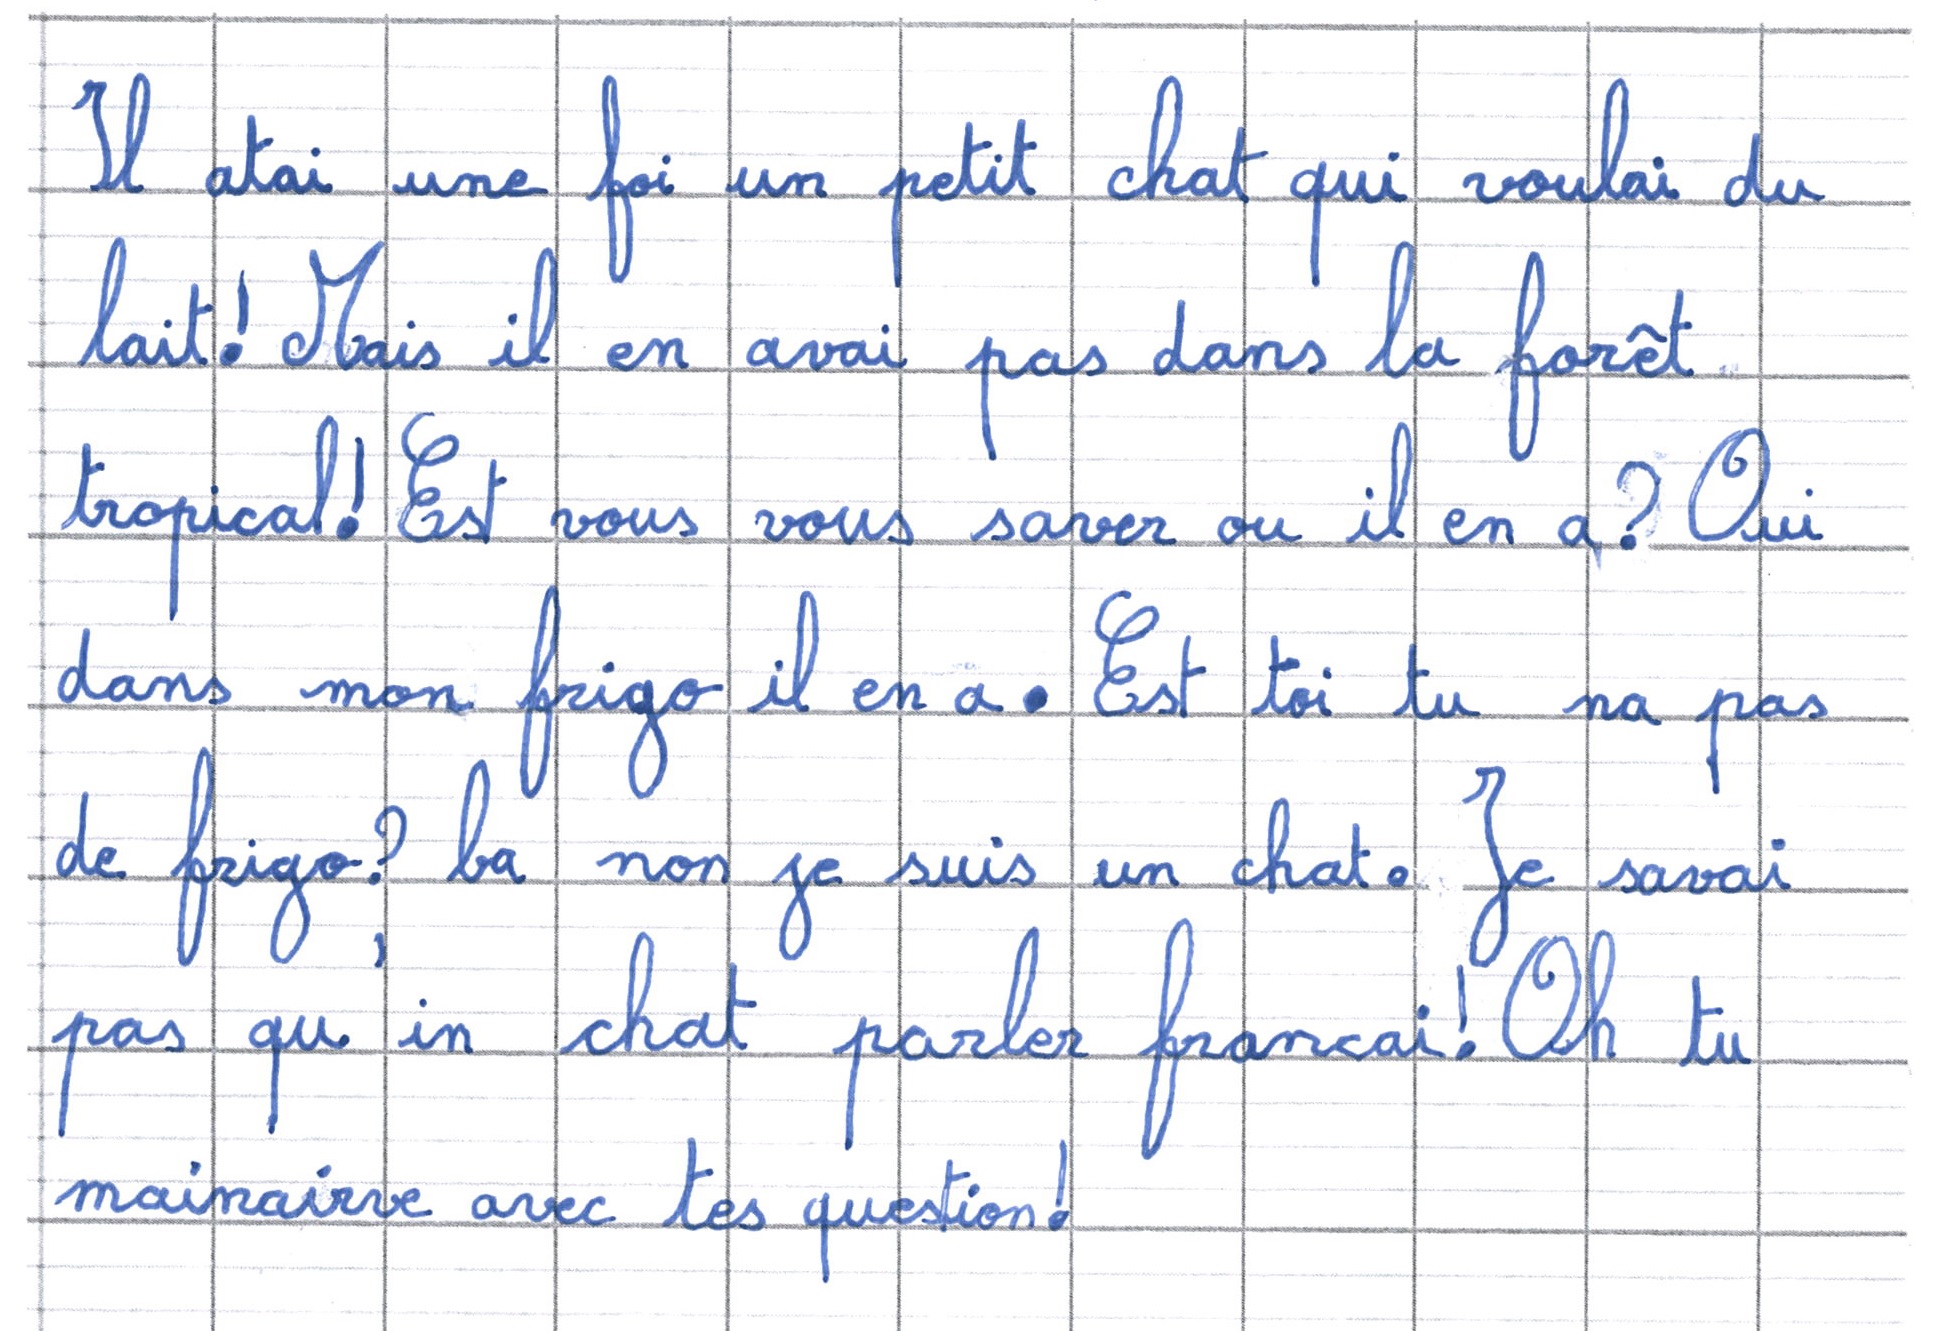 Il atai une foi un petit chat qui voulai du
lait! Mais il en avai pas dans la forêt
tropical! Est vous vous saver ou il en a? Oui
dans mon frigo il en a. Est toi tu na pas
de frigo? ba non je suis un chat. Je savai
pas qu'in chat parler francai! Oh tu
mainairve avec tes question!